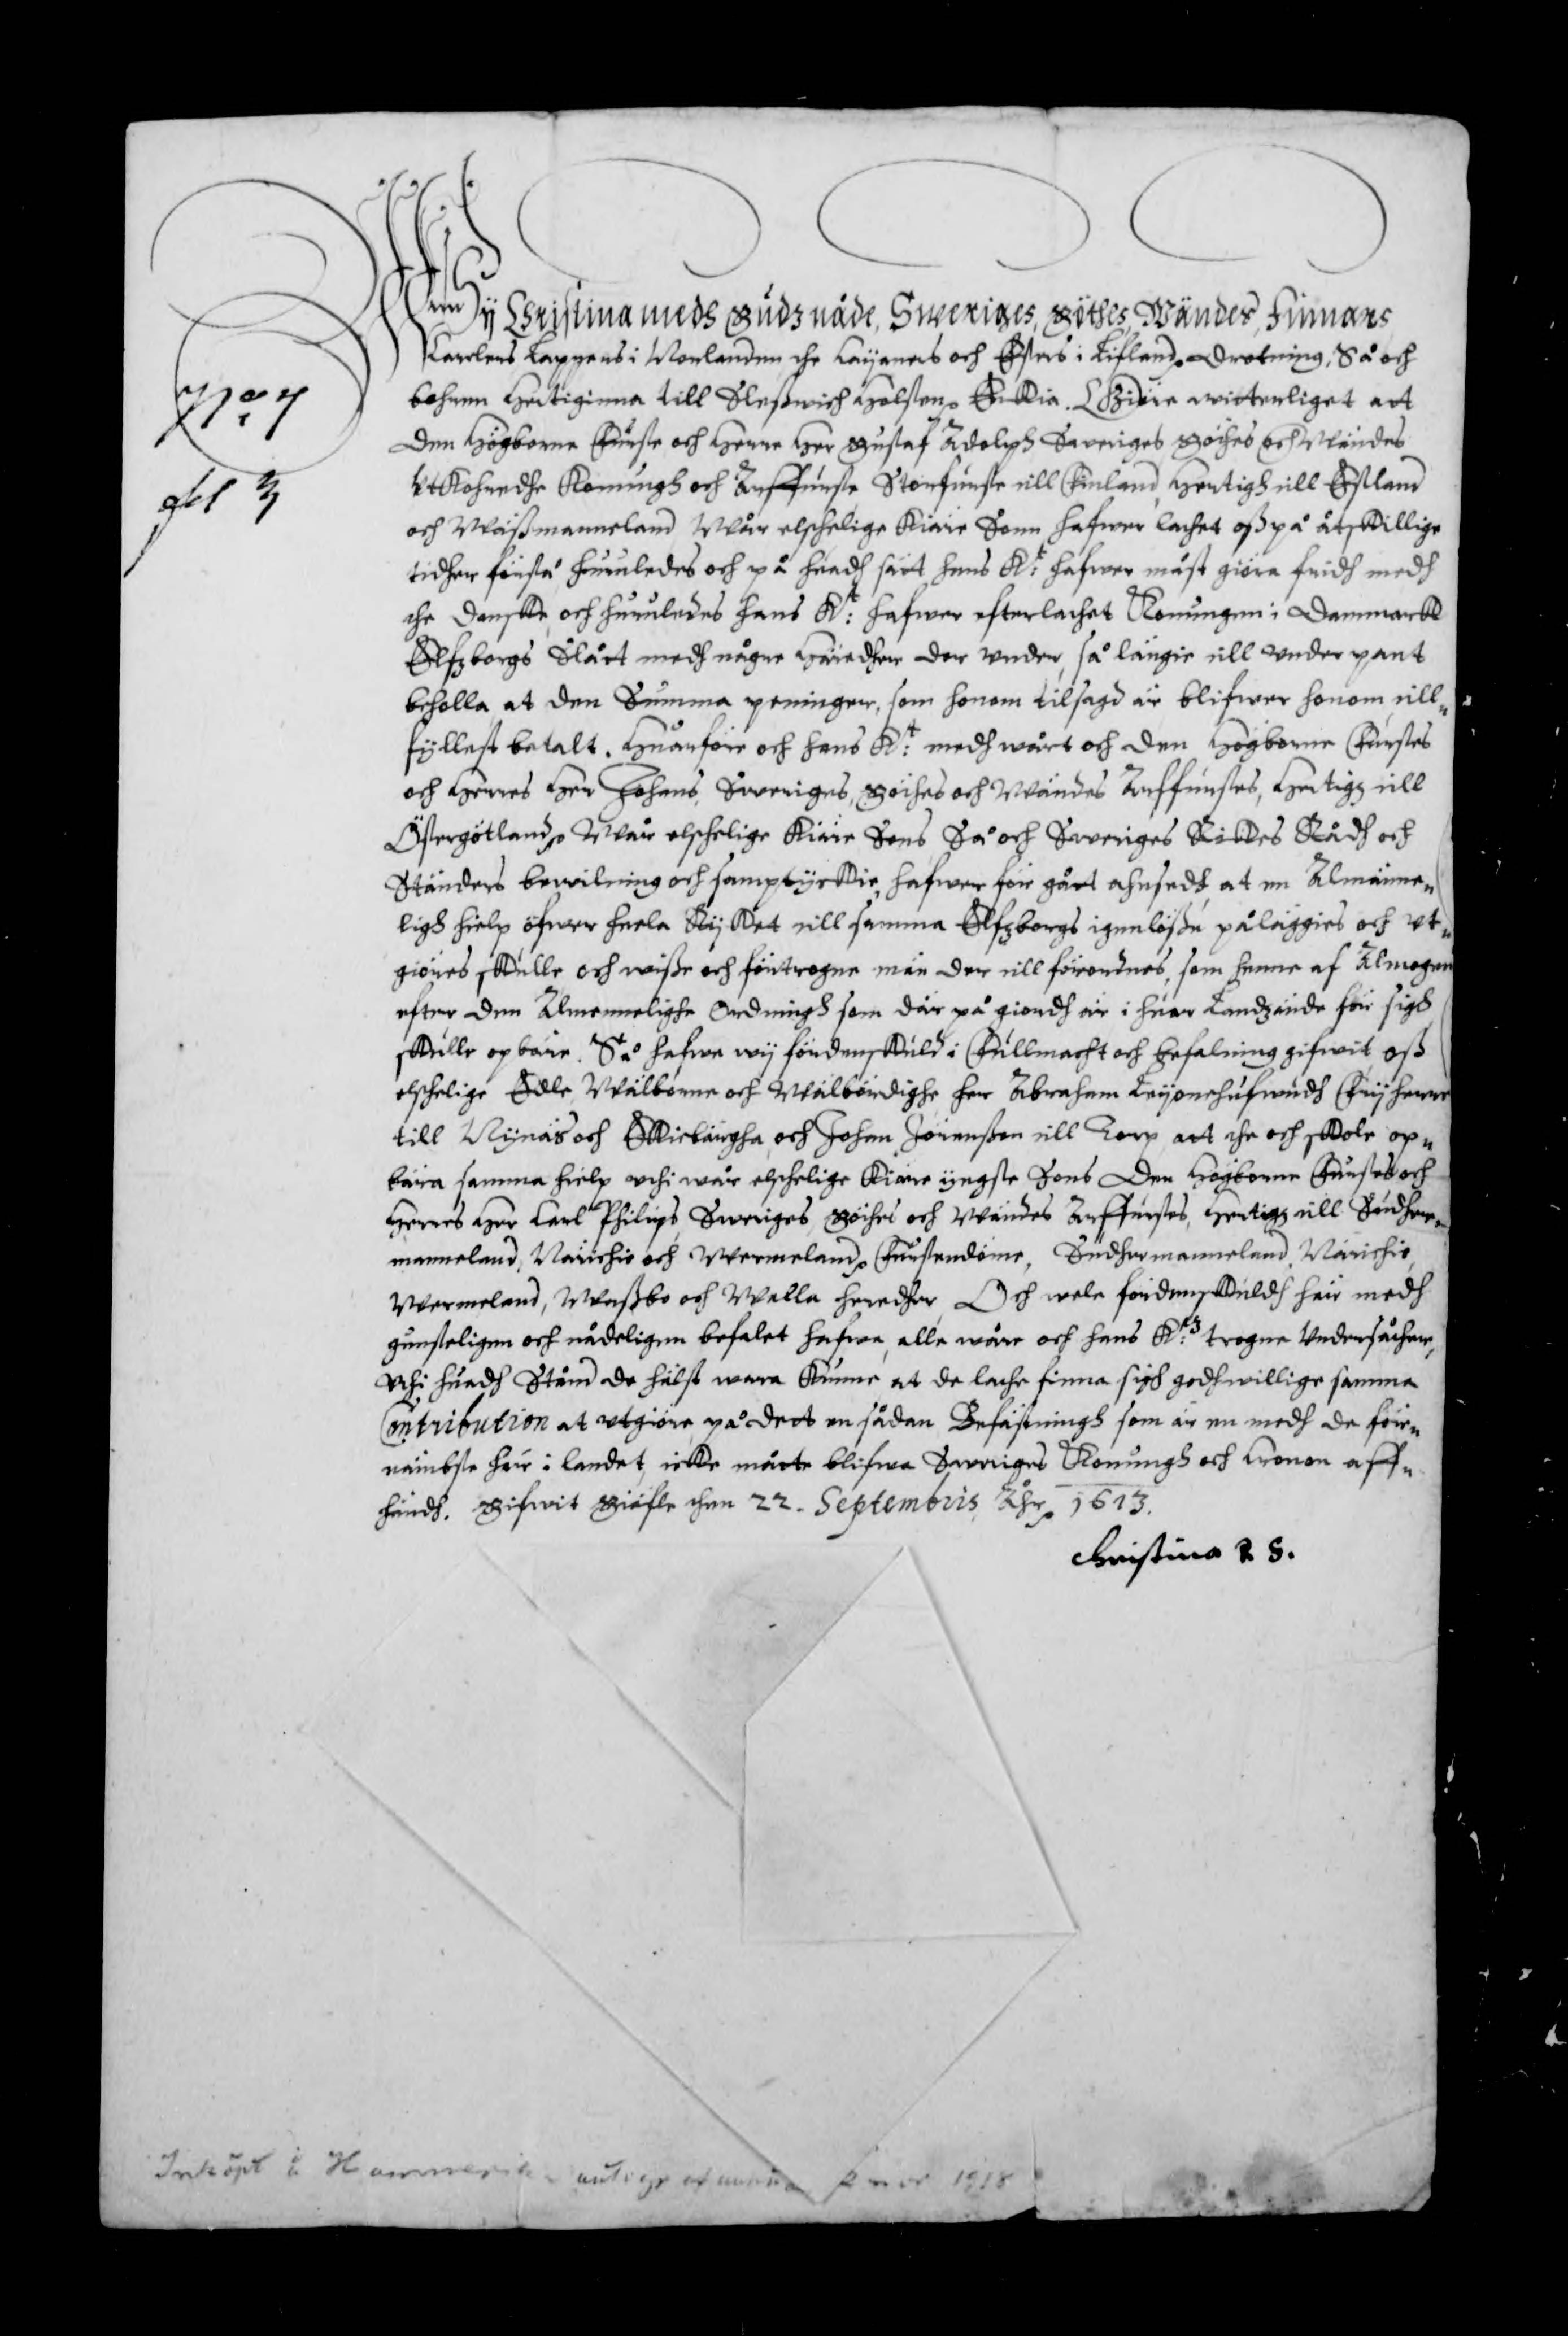 Wy Christina medh Gudz nåde, Sweriges, Göthes, Wändes, Finnars
Carelers Lappers i Norlanden the Cayaners och Esters i Lifland Drotning, Så och
bohren Hertiginna till Slesswich Holsten Enkia. Ghiöre witterliget att
den Högborne Furste och Herre Her Gustaf Adolph Sweriges Göthes och Wändes
Utkohredhe Konungh och Arffurste Storfurste till Finland, Hertigh till Estland
och Wässmanneland Wår elschelige Kiäre Sonn hafwer lathet oss på åtskillige
tidher förstå huruledes och på huadh sätt hans K:t hafwer måst giöra fridh medh
the Danske, och huruledes hans K:t hafwer efterlathet Konungen i Dannmarkk
Elfzborgs Slått medh någre Häredher der under, så länge till underpant
beholla at den Summa peninger, som honom tilsagd är blifwer honom till„
fyllest betalt. Huarföre och hans K:t medh wårt och den Högborne Furstes
och Herres Her Johans, Sweriges, Göthes och Wändes Arffurstes, Hertigz till
Östergötland Wår elschelige Kiäre Sons Så och Sweriges Rikes Rådh och
Ständers bewilning och samptyckie, hafwer för gått ahnsedh, at en Almänne„
ligh hielp öfwer heela Ryket till samma Elfzborgs igenlösse påläggies och ut„
giöres skulle och wisse och förtrogne män der till förordnes, som henne af Almogen
efter den Almennelighe Ordningh som där på giordh är i huar Landzände för sigh
skulle opbäre. Så hafwe wij fördenskuld i Fullmacht och befalning gifwit oss
elschelige Edle, Wälborne och Wälbördighe her Abraham Leyonehufwudh Fryherre
till Nynäs och Ekiebärgha, och Johan Jörensson till Torp att the och skole op„
bära samma hielp uthi wår elschelige Kiäre yngste Sons Den Högborne Furstes och
Herres Her Carl Philips Sweriges, Göthes och Wändes Arffurstes, Hertigz till Sudher„
manneland, Näriche och Wermeland Furstendöme, Sudhermanneland, Näriche,
Wermeland, Wassbo och Walla heredher, Och wele fördenskuldh här medh
gunsteligen och nådeligen befalet hafwe, alle wåre och hans K:tz trogne Undersåther,
Uthi huadh Stånd de hälst wara kunne at de lathe finna sigh godhwillige samma
Contribution at utgiöre, på dett en sådan Befästningh som är en medh de för„
nämbste här i landet, icke måtte blifwa Sweriges Konungh och Cronon aff„
händh. Gifwit Giäfle then 22. Septembris, Åhr 1613.
Christina R S.
N:o 7
Inköpt å Hammer autogr
1918